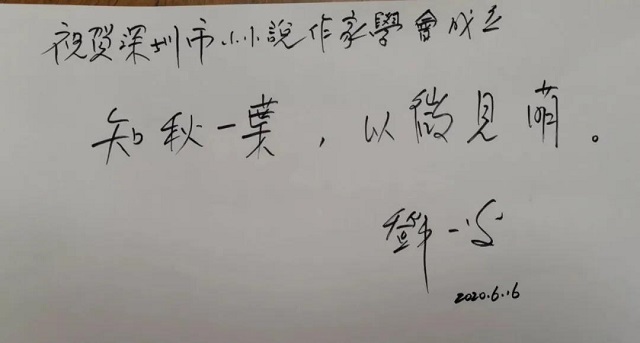 祝賀深圳市小小說作家學會成立
知秋一葉，以微見萌。
鄧一光
2020.6.16